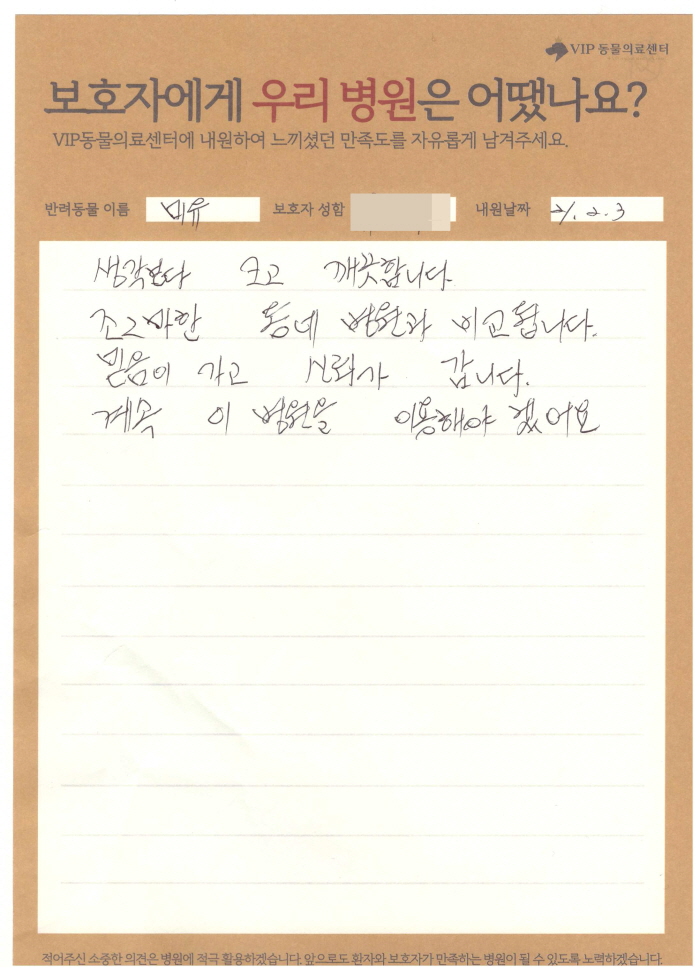 VIP 동물의료센터
보호자에게 우리 병원은 어땠나요?
VIP동물의료센터에 내원하여 느끼셨던 만족도를 자유롭게 남겨주세요.
반려동물 이름 미유 보호자 성함 내원날짜 21. 2. 3
생각보다 크고 깨끗합니다.
조그마한 동네 병원과 비교됩니다.
믿음이 가고 신뢰가 갑니다.
계속 이 병원을 이용해야 겠어요
적어주신 소중한 의견은 병원에 적극 활용하겠습니다. 앞으로도 환자와 보호자가 만족하는 병원이 될 수 있도록 노력하겠습니다.